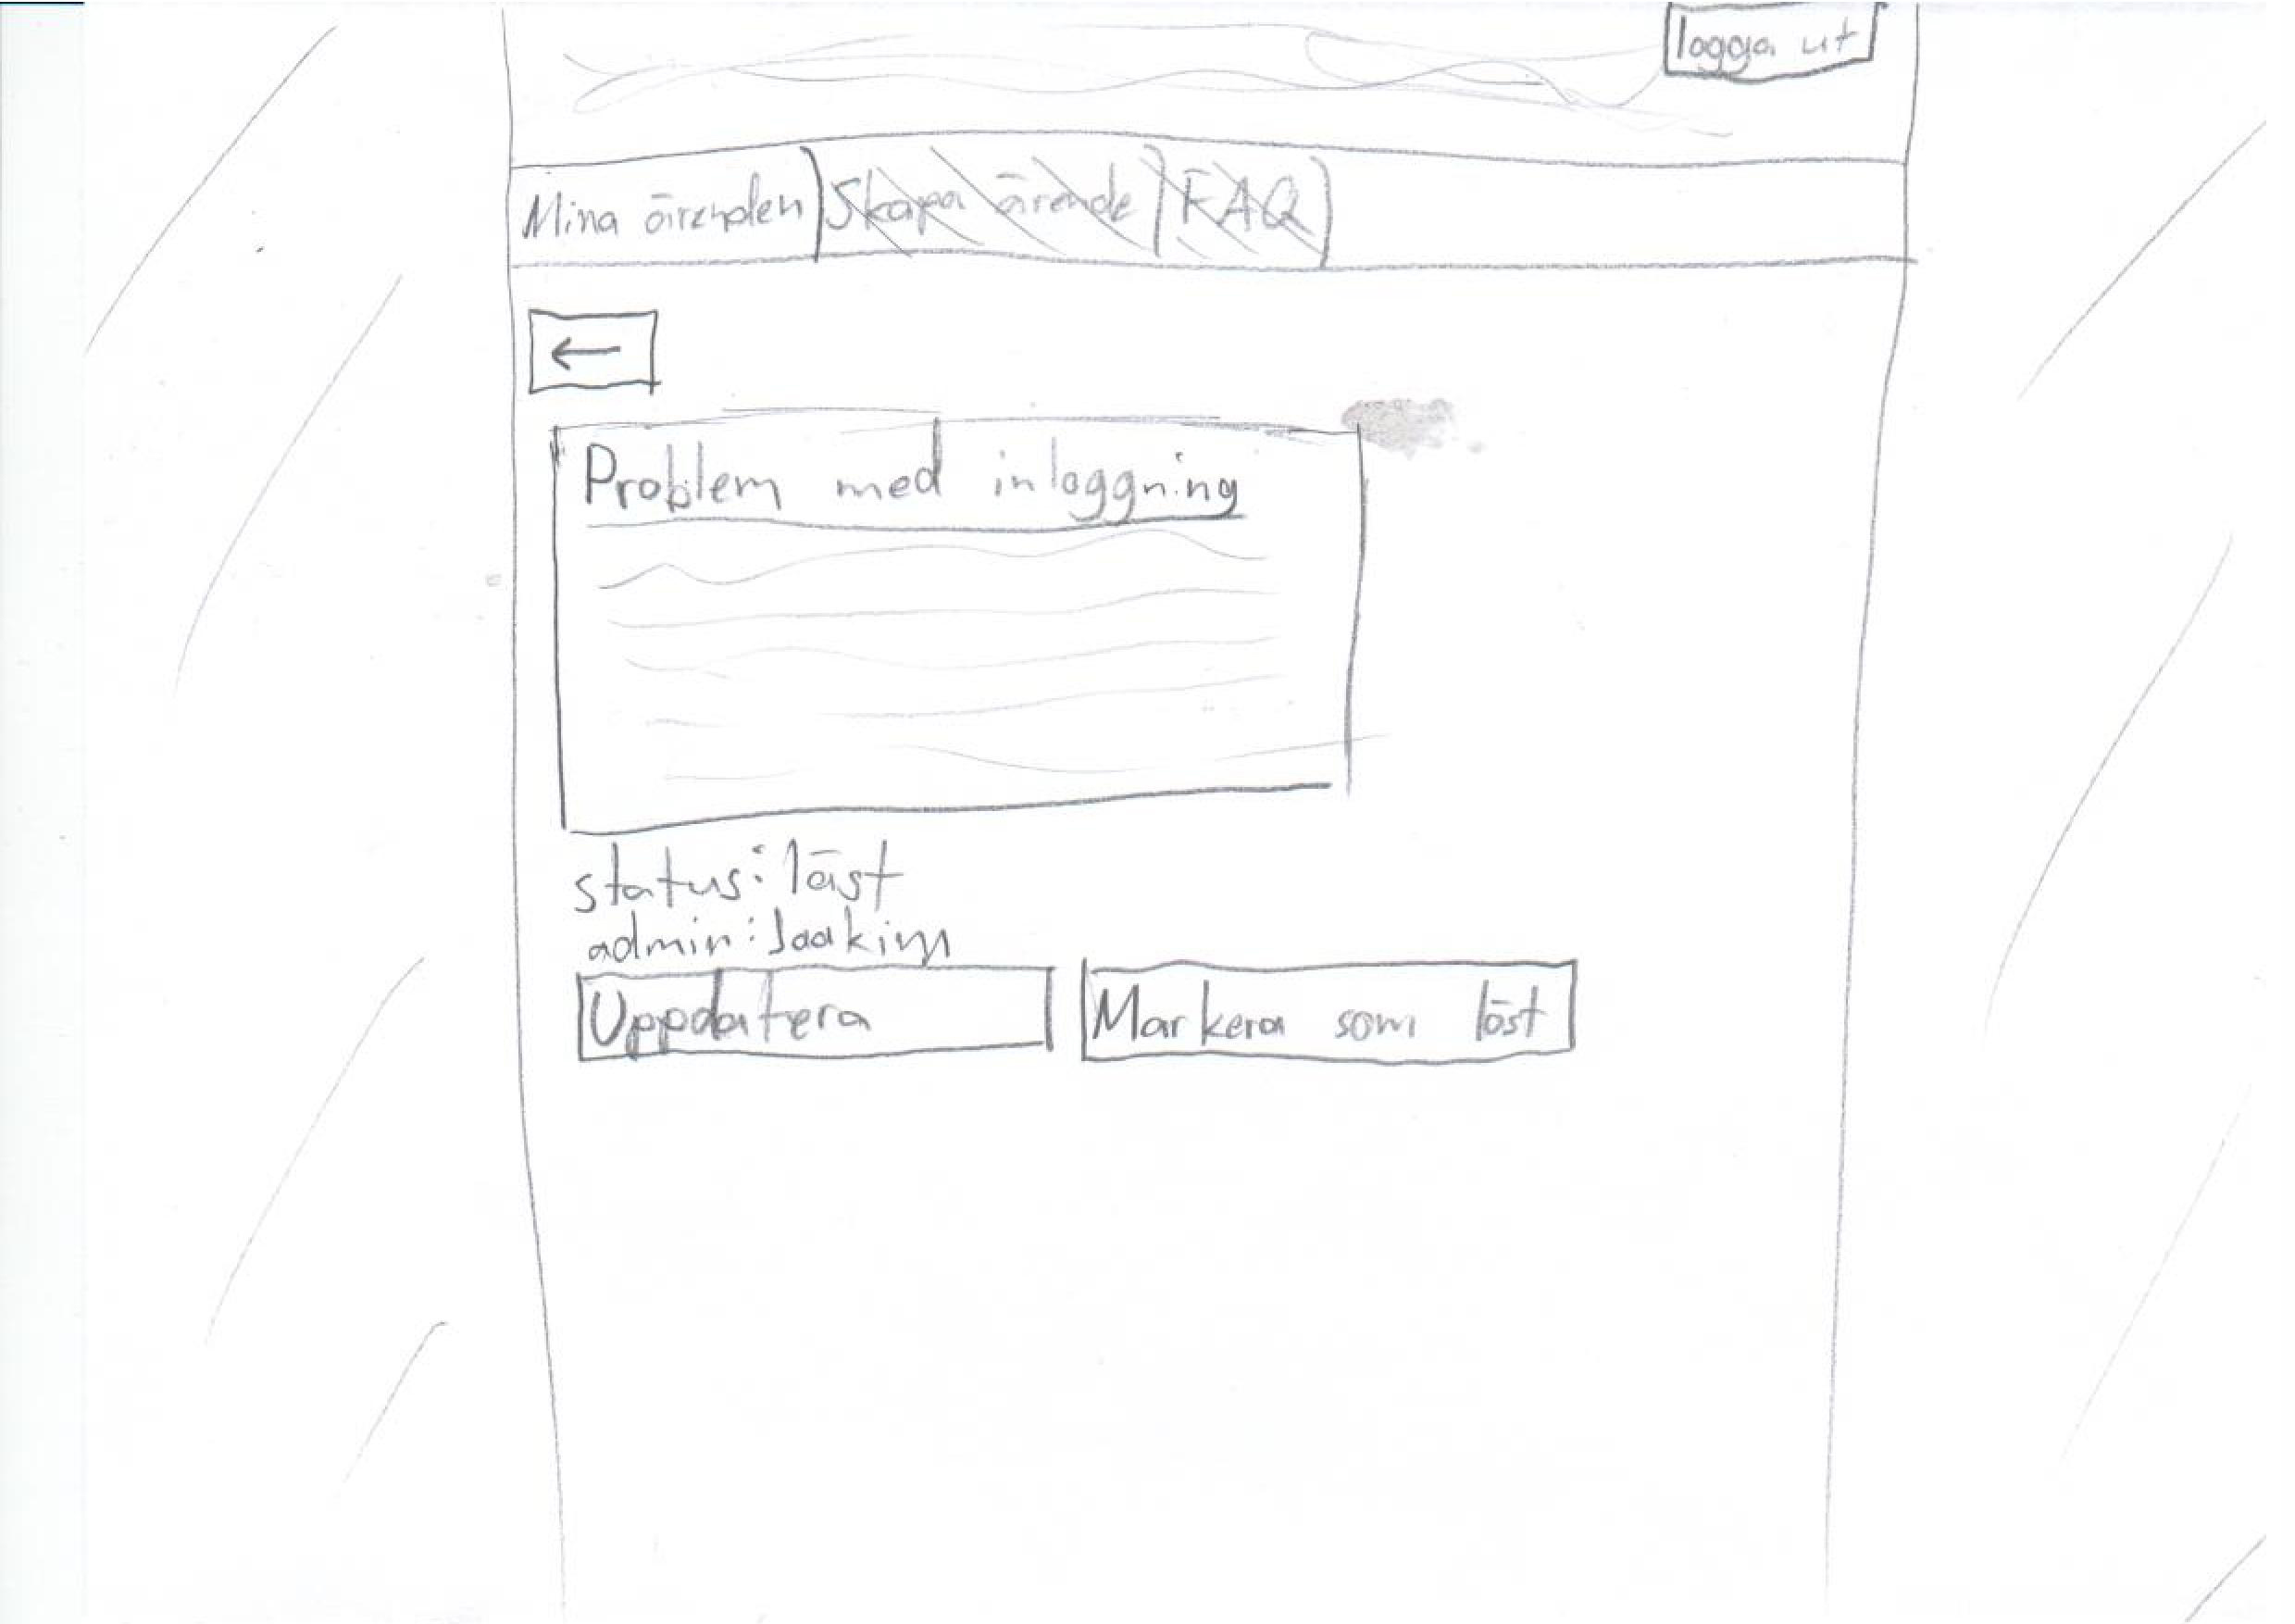 logga ut
Mina ärenden Skapa ärende FAQ
←
Problem med inloggning
status: läst
admin: Joakim
Uppdatera Markera som löst